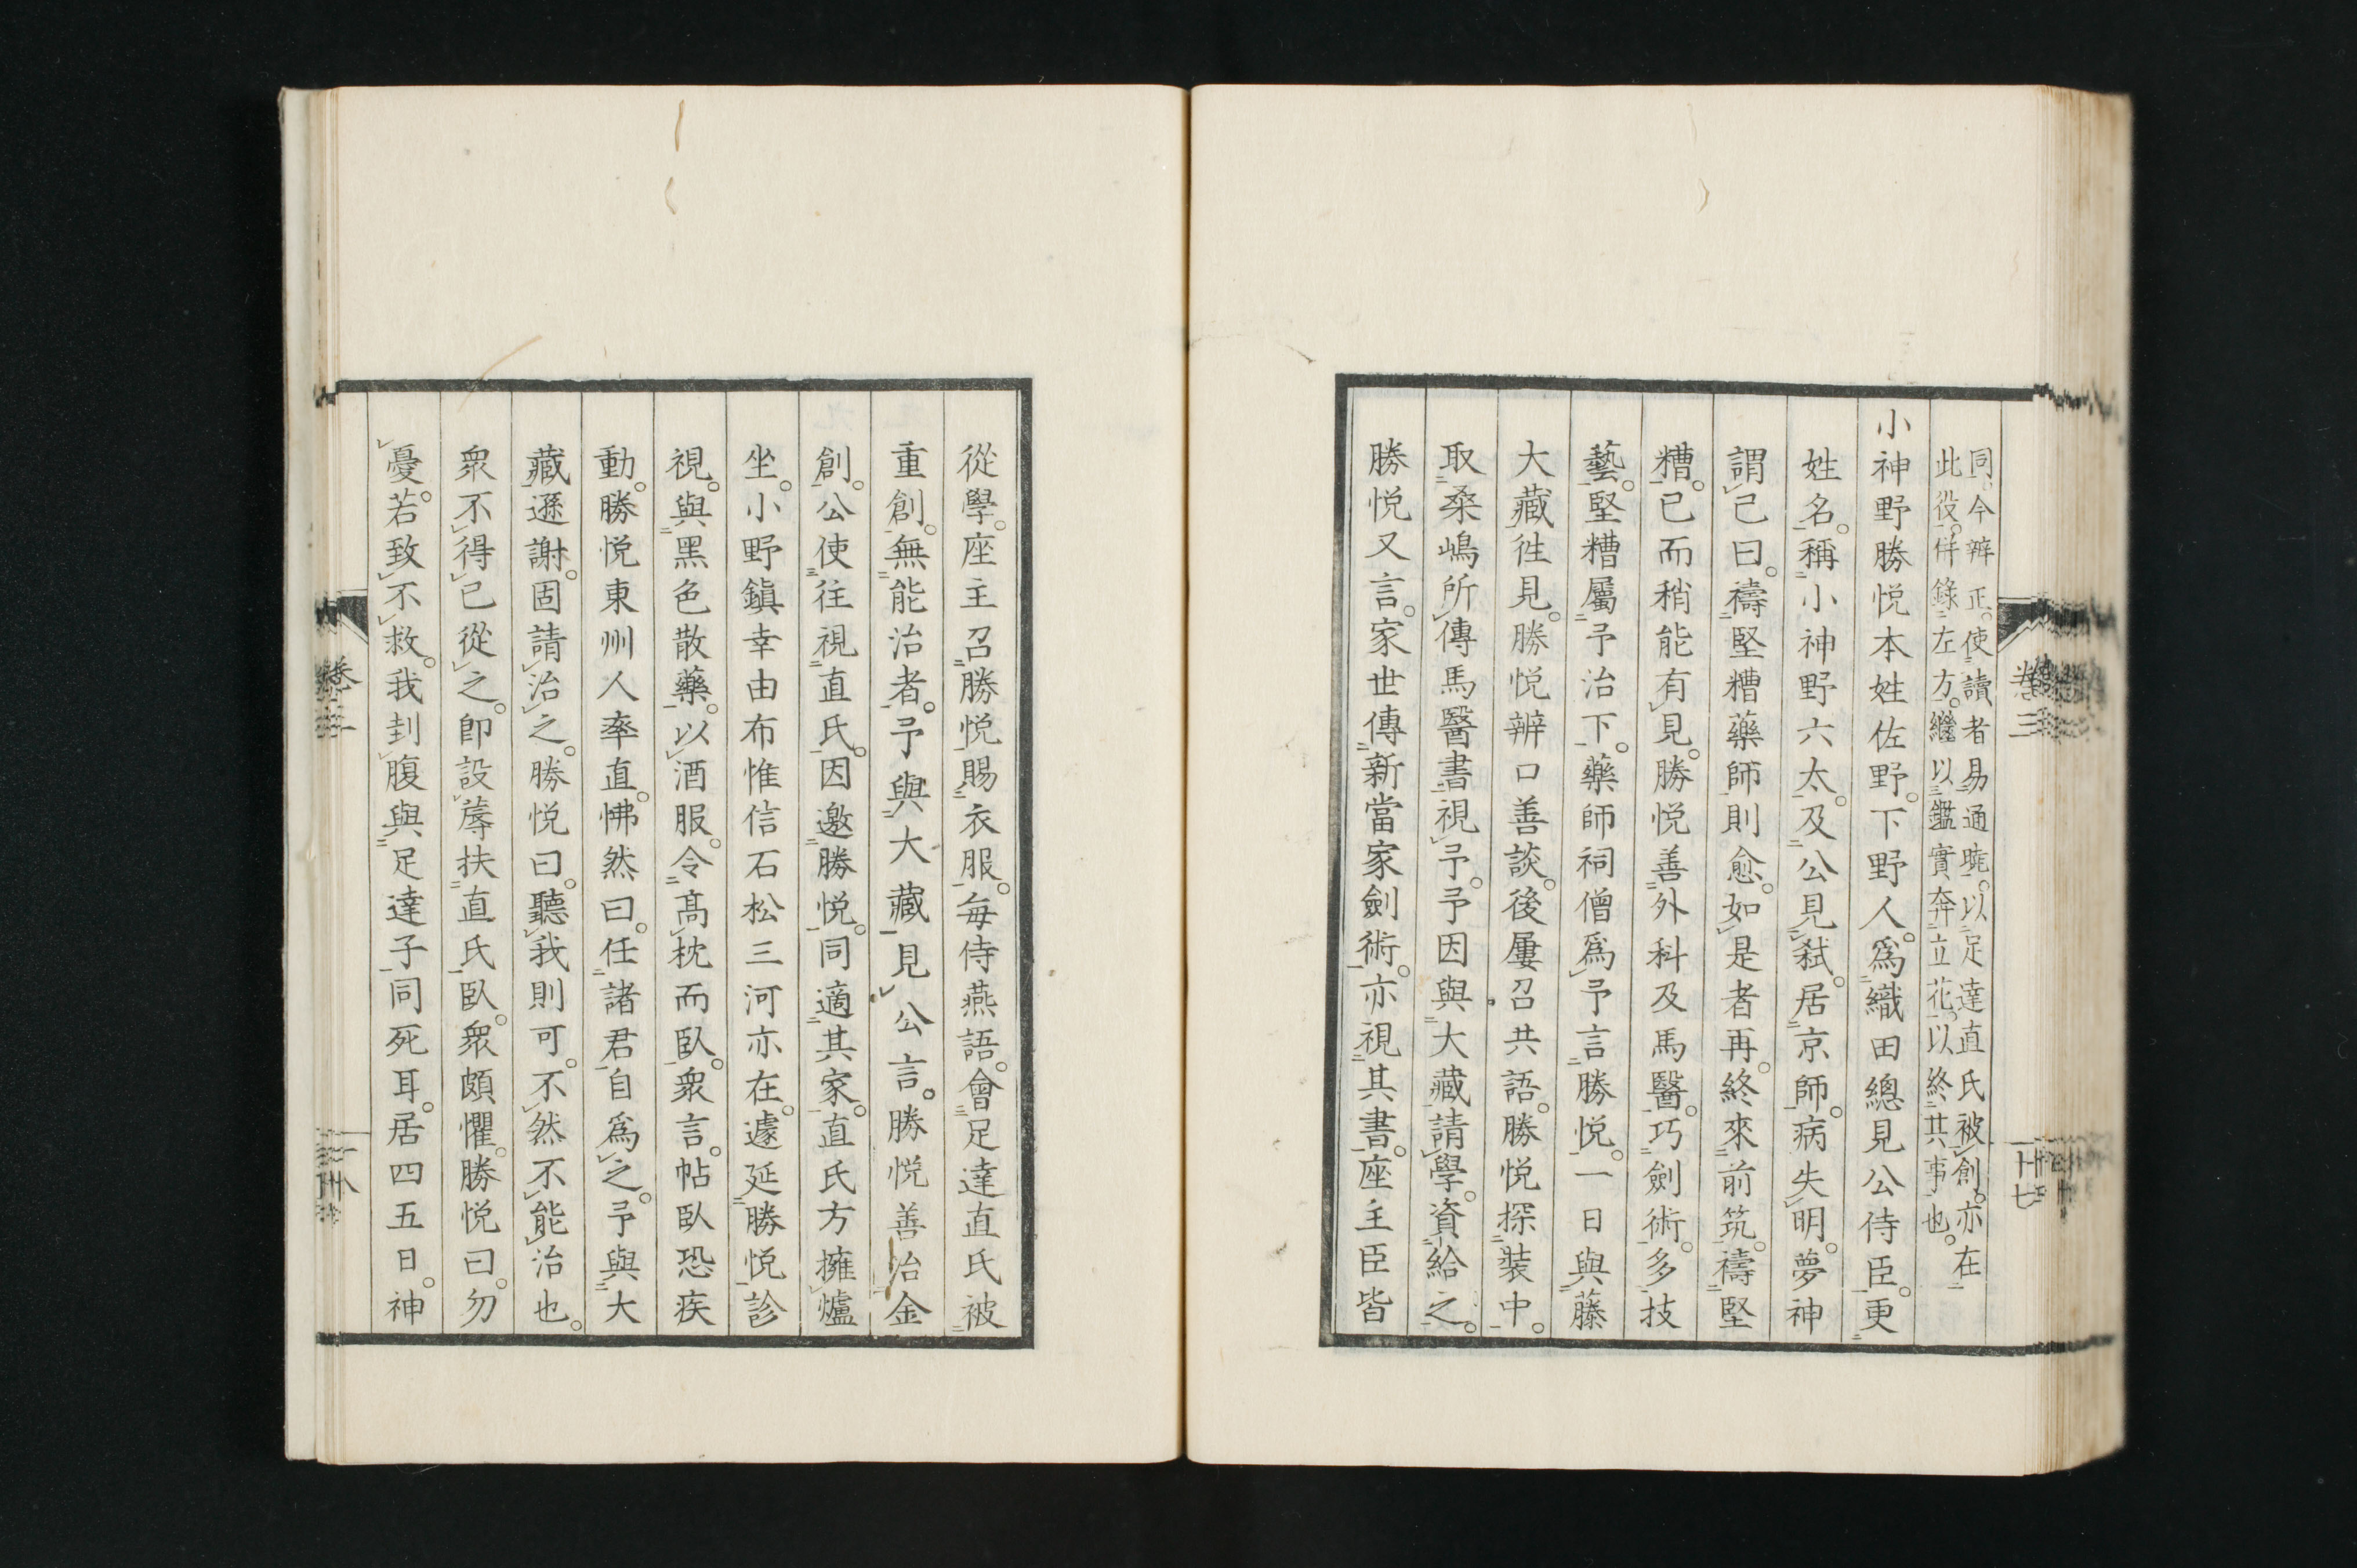 同。今辨正。使讀者易通曉。以足達直氏被創。亦在
此役。併錄左方。繼以鑑實奔立花。以終其事也。
小神野勝悅本姓佐野。下野人。爲織田總見公侍臣。更
姓名。稱小神野六太。及公見弑。居京師。病失明。夢神
謂己曰。禱堅糟藥師則愈。如是者再。終來前筑。禱堅
糟。已而稍能有見。勝悅善外科及馬醫。巧劍術。多技
藝。堅糟屬予治下。藥師祠僧爲予言勝悅。一日與藤
大藏徃見。勝悅辨口善談。後屢召共語。勝悅探装中。
取桑嶋所傳馬醫書視予。予因與大藏請學。資給之。
勝悅又言。家世傳新當家劍術。亦視其書。座主臣皆
卷三
廿七
從學。座主召勝悅賜衣服。每侍燕語。會足達直氏被
重創。無能治者。予與大藏見公言。勝悅善治金
創。公使往視直氏。因邀勝悅。同適其家。直氏方擁爐
坐。小野鎭幸由布惟信石松三河亦在。遽延勝悅診
視。與黑色散藥。以酒服。令高枕而臥。衆言。帖臥恐疾
動。勝悅東州人率直。怫然曰。任諸君自爲之。予與大
藏遜謝。固請治之。勝悅曰。聽我則可。不然不能治也。
衆不得已從之。卽設蓐扶直氏臥。衆頗懼。勝悅曰。勿
憂。若致不救。我刲腹與足達子同死耳。居四五日。神